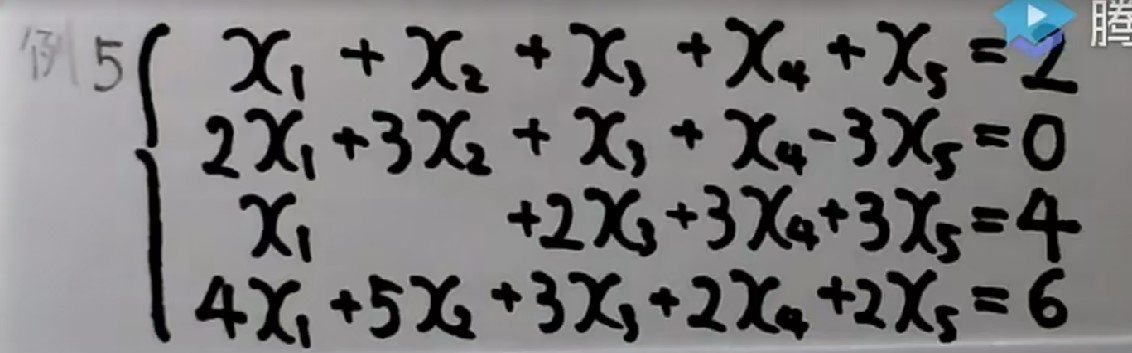 例5 x₁ + x₂ + x₃ + x₄ + x₅ = 2
2x₁ + 3x₂ + x₃ + x₄ - 3x₅ = 0
x₁ + 2x₃ + 3x₄ + 3x₅ = 4
4x₁ + 5x₂ + 3x₃ + 2x₄ + 2x₅ = 6
腾